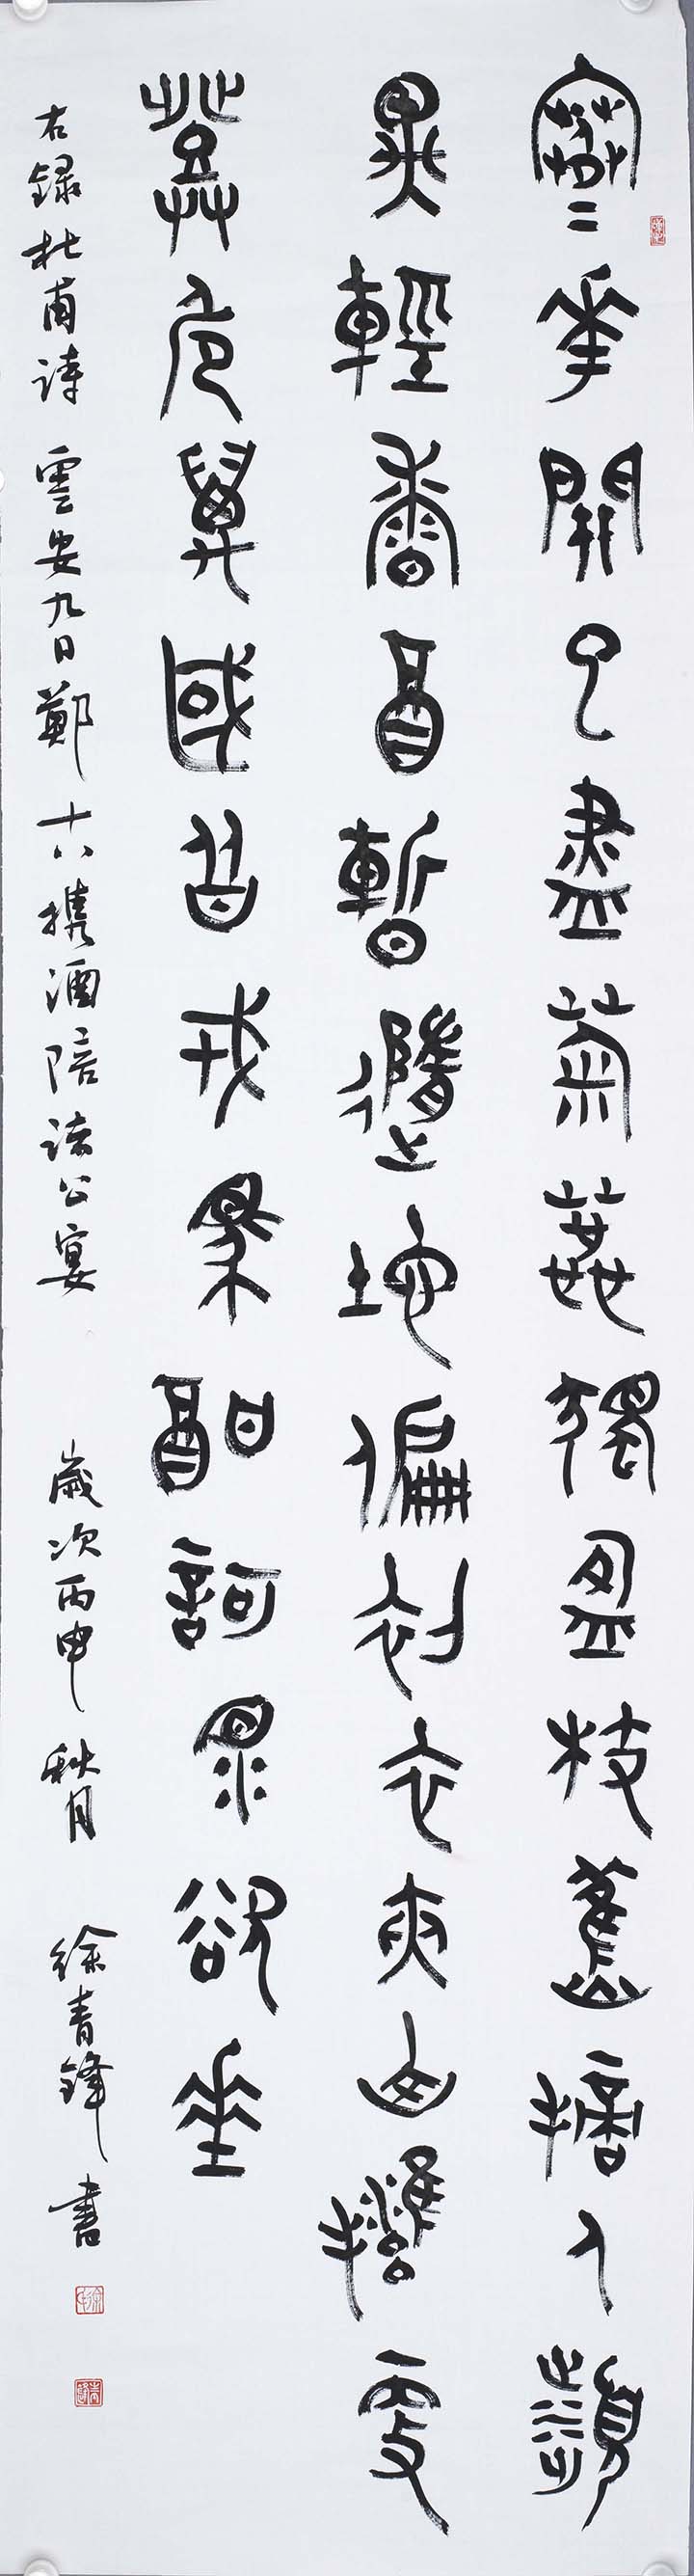 寒花開已盡菊蕊獨盈枝舊摘人頻
異輕香酒暫隨地偏初衣夾山擁更
登危萬國皆戎馬酣歌淚欲垂
右録杜甫詩 雲安九日鄭十八携酒陪諸公宴 歲次丙申 秋月 徐青鋒書